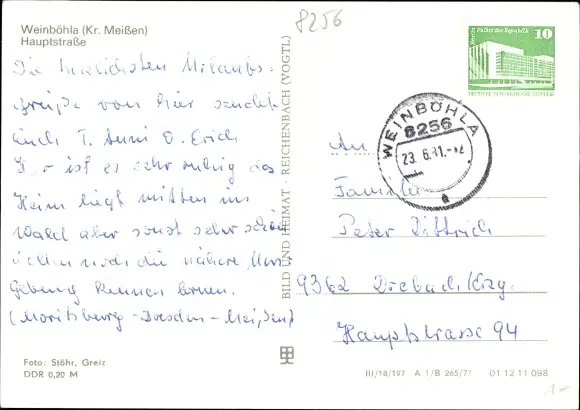 8256
Weinböhla (Kr. Meißen)
Hauptstraße
Die herzlichsten Urlaubs-
grüße von hier sendet
Euch T. Anni O. Erich
Hier ist es sehr ruhig das
Heim liegt mitten im
Wald aber sonst sehr schön
wollen noch die nähere Um-
gebung kennen lernen.
(Moritzburg-Dresden-Meißen)
Foto: Stöhr, Greiz
DDR 0,20 M
BILD UND HEIMAT · REICHENBACH (VOGTL)
Palast der Republik
10
WEINBÖHLA
8256
23. 6.81.-12
a
An
Familie
Peter Dittrich
9362 Drebach/Erzg.
Hauptstrasse 94
III/18/197 A 1/B 265/77 01 12 11 098